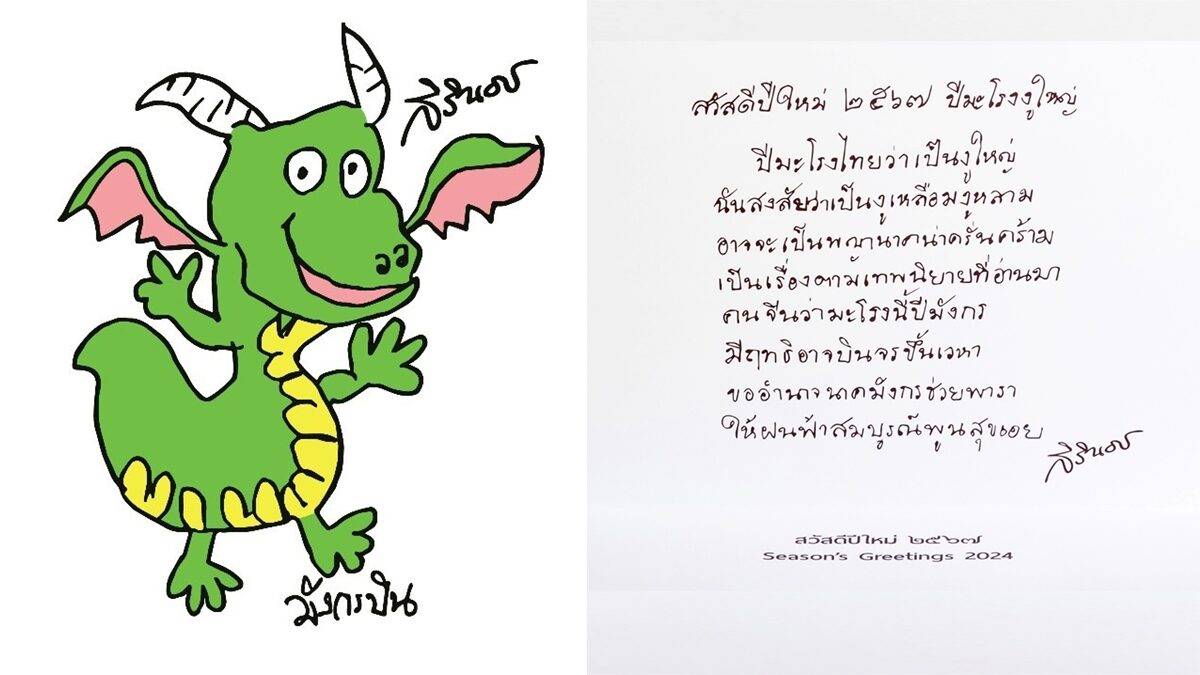 สิรินธร
มังกรบิน
สวัสดีปีใหม่ ๒๕๖๗ ปีมะโรงงูใหญ่
ปีมะโรงไทยว่าเป็นงูใหญ่
นั่นสงสัยว่าเป็นงูเหลือมงูหลาม
อาจจะเป็นพญานาคน่าครั่นคร้าม
เป็นเรื่องตามเทพนิยายที่อ่านมา
คนจีนว่ามะโรงนี้ปีมังกร
มีฤทธิอาจบินจรขึ้นเวหา
ขออำนาจนาคมังกรช่วยพารา
ให้ฝนฟ้าสมบูรณ์พูนสุขเอย
สิรินธร
สวัสดีปีใหม่ ๒๕๖๗
Season's Greetings 2024